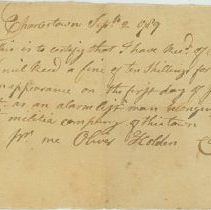 Charlestown Septr 2 1789
This is to certify that I have Recd of
niel Reed a fine of ten Shillings for
nappearance on the first day of
as an alarm list man belonging
militia company of this town
pr me Oliver Holden